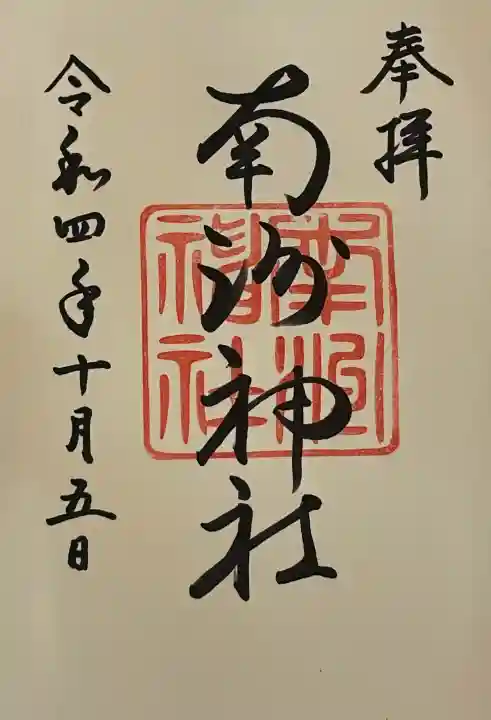 奉拝
南洲神社
南洲神社
令和四年十月五日